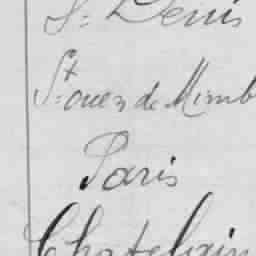 St Denis
St ouen de Mimb
Paris
Chatelain